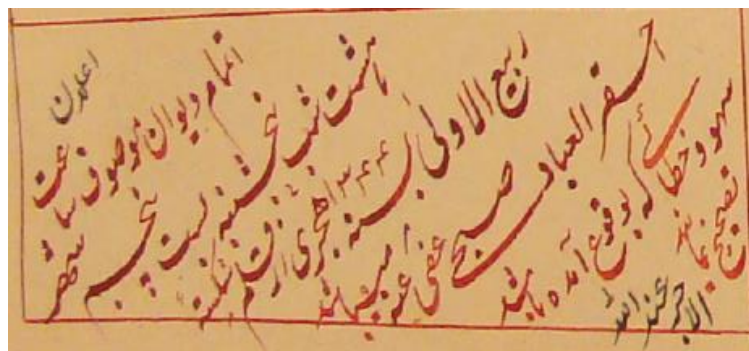 اتمام دیوان موصوف ساعت
هشت شب پنجشنبه بیست پنجم شهر
ربیع الاولی بسنه ۱۳۴۴ هجری از رقم شکسته
احقر العباد صبیح عفی عنه میباشد
سهو و خطائی که بوقوع آمده باشد
تصحیح نمایند
الاجر عند الله